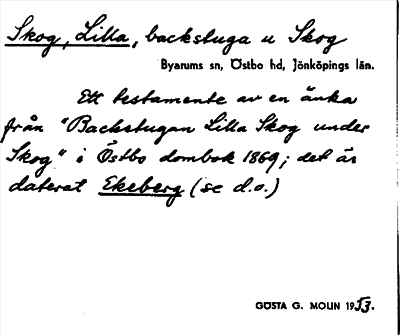 Skog, Lilla, backstuga u Skog
Byarums sn, Östbo hd, Jönköpings län.
Ett testamente av en änka
från "Backstugan Lilla Skog under
Skog" i Östbo dombok 1869; det är
daterat Ekeberg (se d.o.)
GÖSTA G. MOLIN 1953.